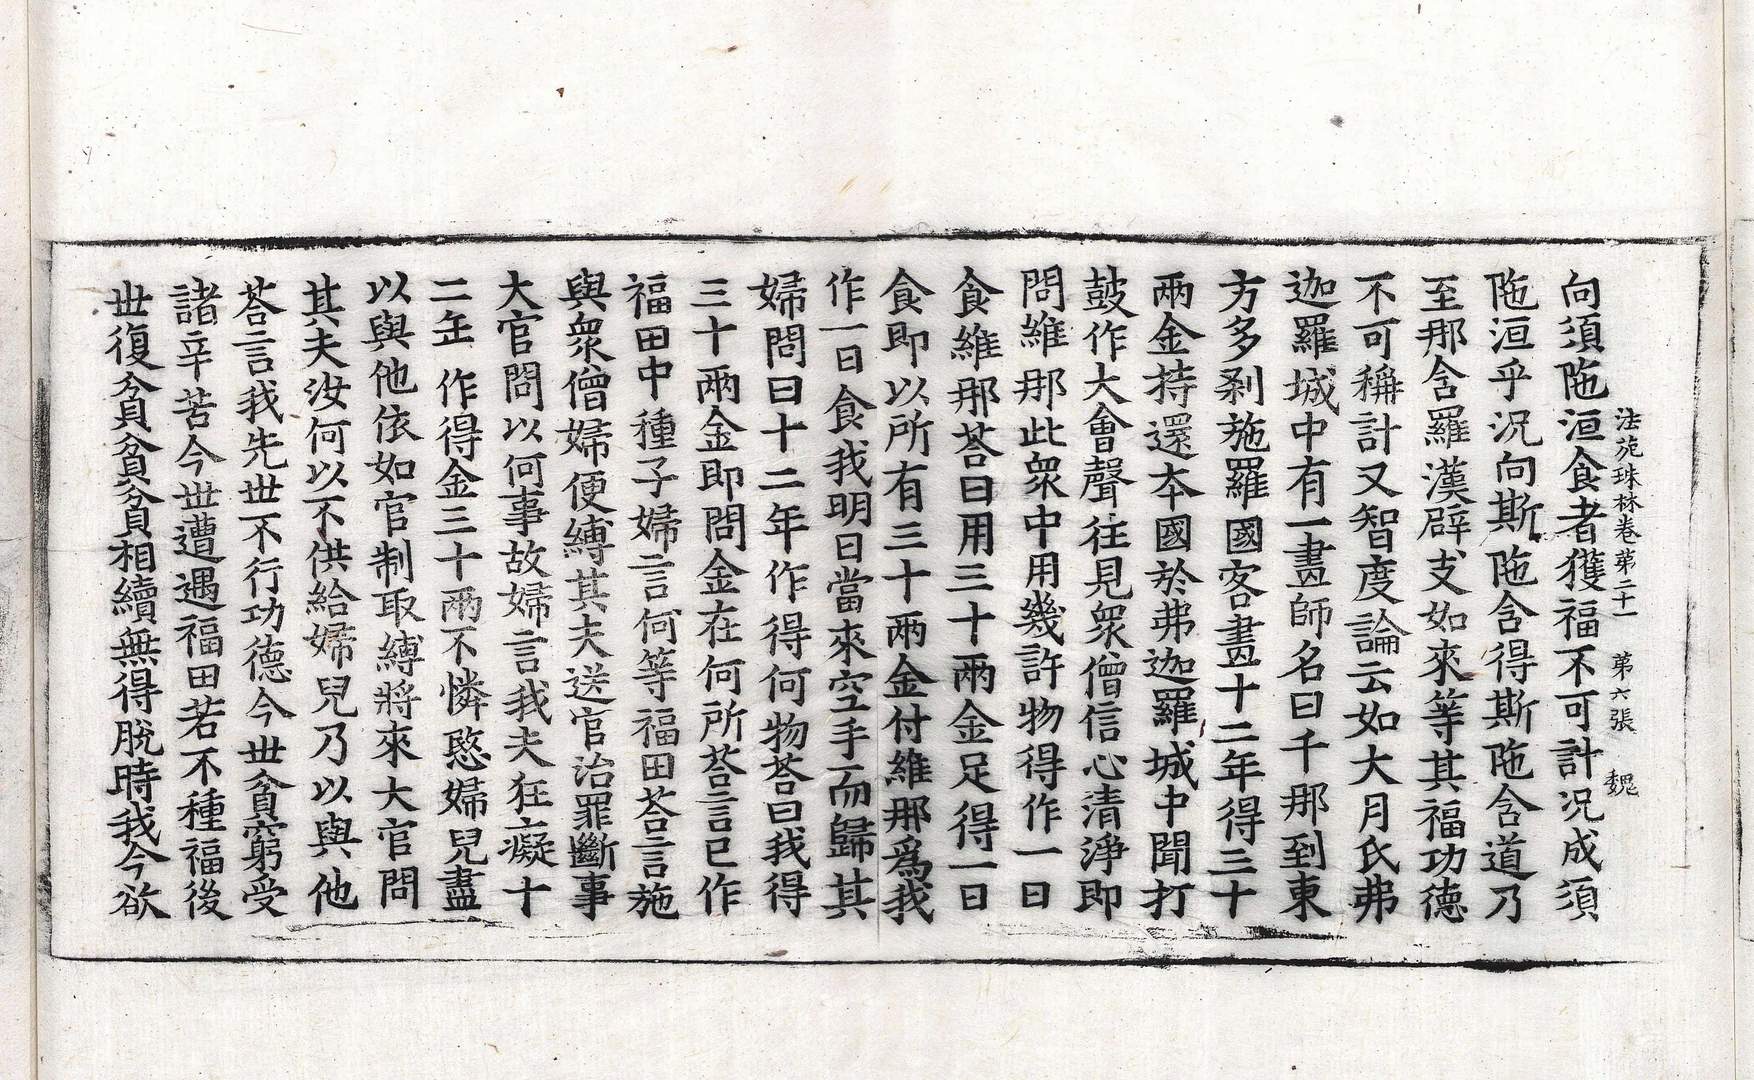 法苑珠林卷第二十一 第六張 魏
向須陁洹食者獲福不可計况成須
陁洹乎况向斯陁含得斯陁含道乃
至那含羅漢辟支如來等其福功德
不可稱計又智度論云如大月氏弗
迦羅城中有一畫師名曰千那到東
方多剎施羅國客畫十二年得三十
兩金持還本國於弗迦羅城中聞打
鼓作大會聲往見衆僧信心清淨即
問維那此衆中用幾許物得作一日
食維那荅曰用三十兩金足得一日
食即以所有三十兩金付維那爲我
作一日食我明日當來空手而歸其
婦問曰十二年作得何物荅曰我得
三十兩金即問金在何所荅言已作
福田中種子婦言何等福田荅言施
與衆僧婦便縛其夫送官治罪斷事
大官問以何事故婦言我夫狂癡十
二年作得金三十兩不憐愍婦兒盡
以與他依如官制取縛將來大官問
其夫汝何以不供給婦兒乃以與他
荅言我先世不行功德今世貧窮受
諸辛苦今世遭遇福田若不種福後
世復貧貧貧相續無得脫時我今欲